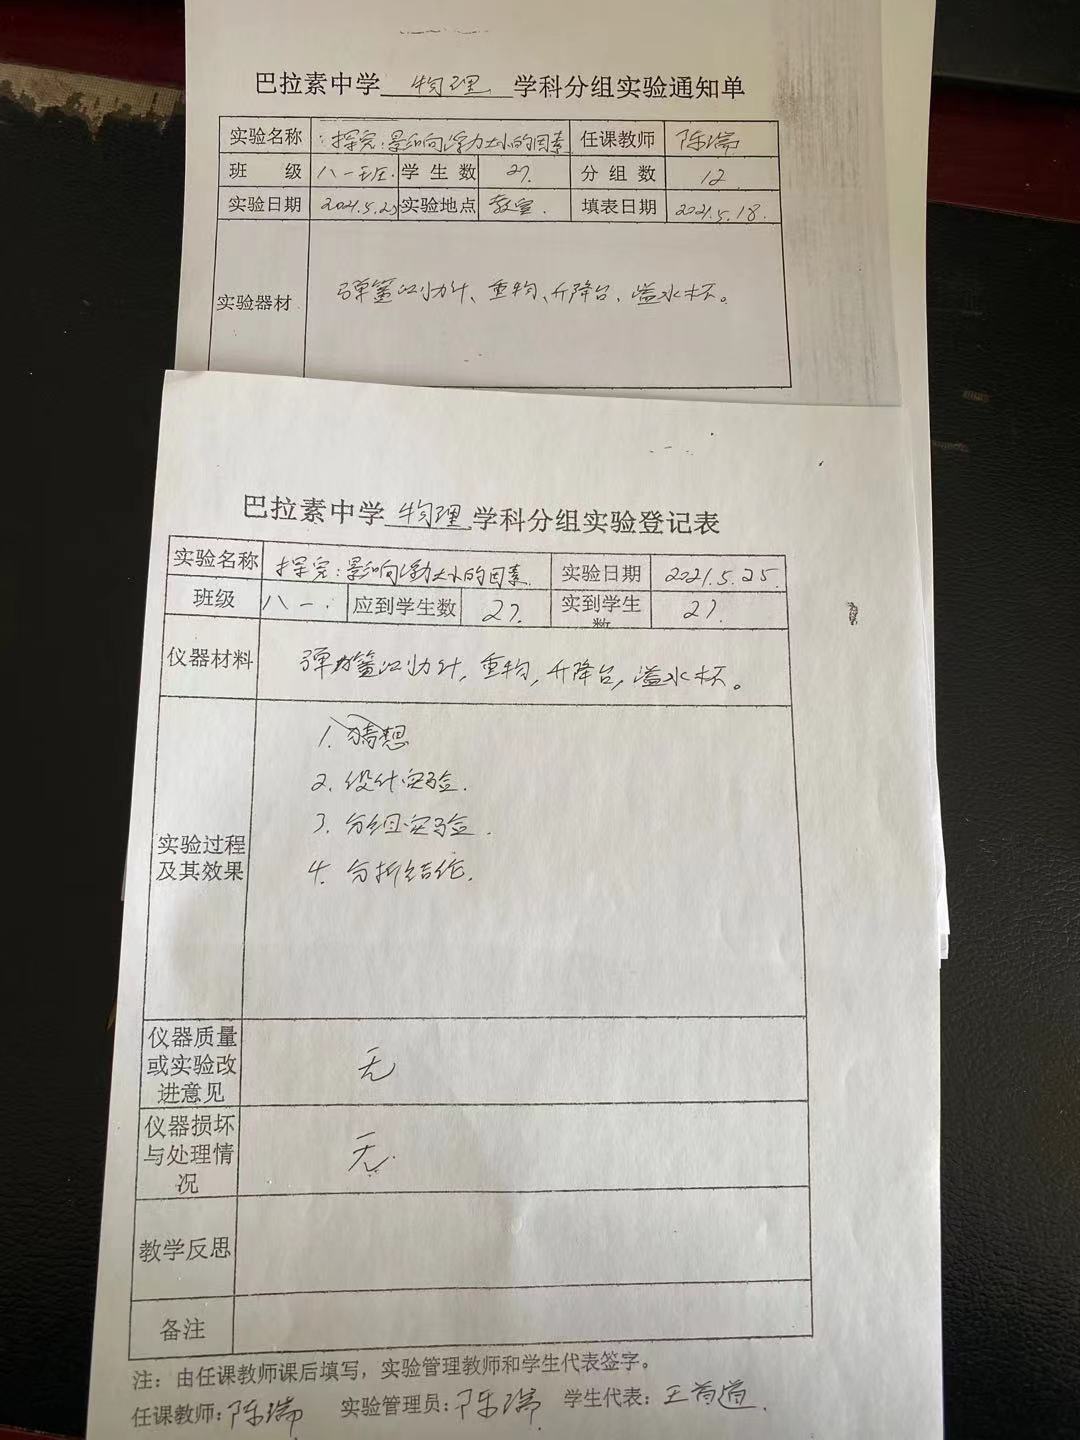 巴拉素中学 物理 学科分组实验通知单
实验名称 探究:影响浮力大小的因素 任课教师 陈瑞
班 级 八一班. 学生数 27. 分组数 12
实验日期 2021.5.25 实验地点 教室. 填表日期 2021.5.18.
实验器材 弹簧测力计、重物、升降台、溢水杯。
巴拉素中学 物理 学科分组实验登记表
实验名称 探究:影响浮力大小的因素. 实验日期 2021.5.25.
班级 八一. 应到学生数 27. 实到学生数 27.
仪器材料 弹簧测力计,重物,升降台,溢水杯。
1. 猜想
2. 设计实验.
3. 分组实验.
4. 分析结论.
实验过程
及其效果
仪器质量
或实验改
进意见
无
仪器损坏
与处理情
况
无.
教学反思
备注
注:由任课教师课后填写,实验管理教师和学生代表签字。
任课教师:陈瑞 实验管理员:陈瑞 学生代表:王首道.